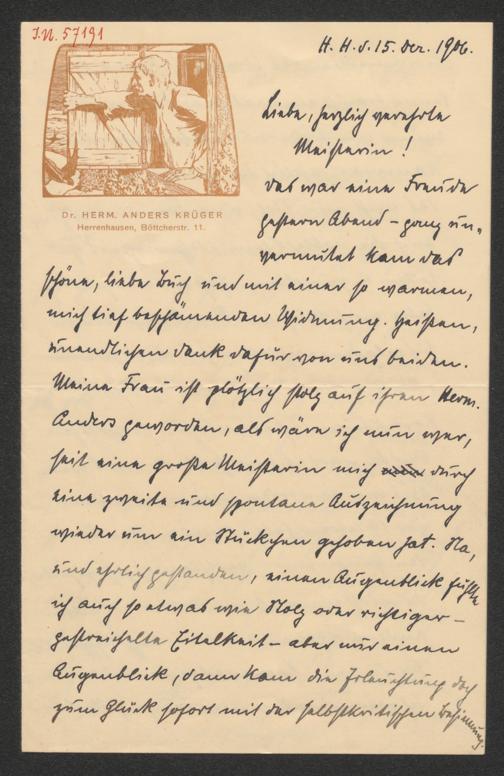 J.N. 57191
H. H. d. 15. Dez. 1906.
Dr. HERM. ANDERS KRÜGER
Herrenhausen, Böttcherstr. 11.
Liebe, herzlich verehrte
Meisterin!
das war eine Freude
gestern Abend – ganz un-
vermutet kam das
schöne, liebe Buch und mit einer so warmen,
mich tief beschämenden Widmung. Heißen,
unendlichen Dank dafür von uns beiden.
Meine Frau ist plötzlich stolz auf ihren Herm.
Anders geworden, als wäre ich nun wer,
seit eine große Meisterin mich durch
eine zweite und spontane Auszeichnung
wieder um ein Stückchen gehoben hat. Na,
und ehrlich gestanden, einen Augenblick fühlte
ich auch so etwas wie Stolz oder richtiger –
gestreichelte Eitelkeit – aber nur einen
Augenblick, dann kam die Erleuchtung doch
zum Glück sofort mit der selbstkritischen Besinnung.